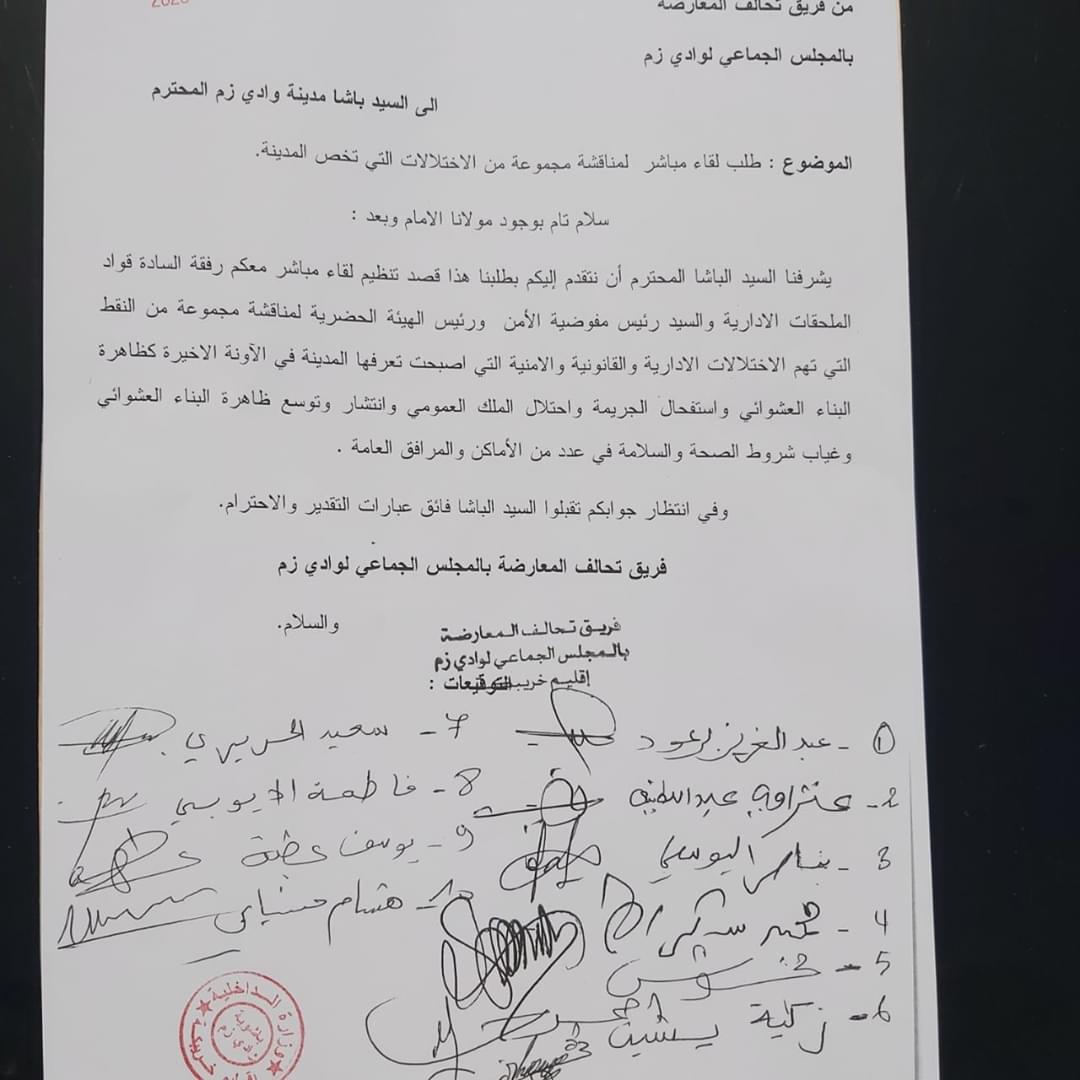 2023
من فريق تحالف المعارضة
بالمجلس الجماعي لوادي زم
الى السيد باشا مدينة وادي زم المحترم
الموضوع : طلب لقاء مباشر لمناقشة مجموعة من الاختلالات التي تخص المدينة.
سلام تام بوجود مولانا الامام وبعد :
يشرفنا السيد الباشا المحترم أن نتقدم إليكم بطلبنا هذا قصد تنظيم لقاء مباشر معكم رفقة السادة قواد
الملحقات الادارية والسيد رئيس مفوضية الأمن ورئيس الهيئة الحضرية لمناقشة مجموعة من النقط
التي تهم الاختلالات الادارية والقانونية والامنية التي اصبحت تعرفها المدينة في الآونة الاخيرة كظاهرة
البناء العشوائي واستفحال الجريمة واحتلال الملك العمومي وانتشار وتوسع ظاهرة البناء العشوائي
وغياب شروط الصحة والسلامة في عدد من الأماكن والمرافق العامة .
وفي انتظار جوابكم تقبلوا السيد الباشا فائق عبارات التقدير والاحترام.
فريق تحالف المعارضة بالمجلس الجماعي لوادي زم
والسلام.
فريق تحالف المعارضة
بالمجلس الجماعي لوادي زم
إقليم خريبكة
التوقيعات :
1 - عبد العزيز
2 -
3 - اليوسي
4 -
5 -
6 - زكية
7 - سعيد الحريري
8 - فاطمة
9 - يوسف عطية
10 - هشام
وزارة الداخلية
باشوية
وادي زم